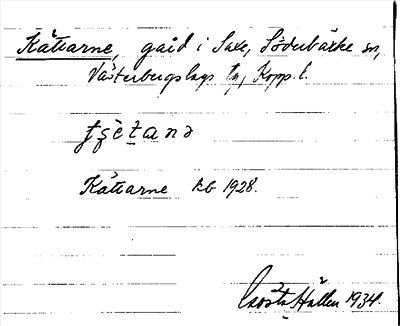 Kättarne, gård i Saxe, Söderbärke sn,
Västerbergslags tg, Kopp. l.
Kättarne kb 1928.
Gösta Hallen 1934.